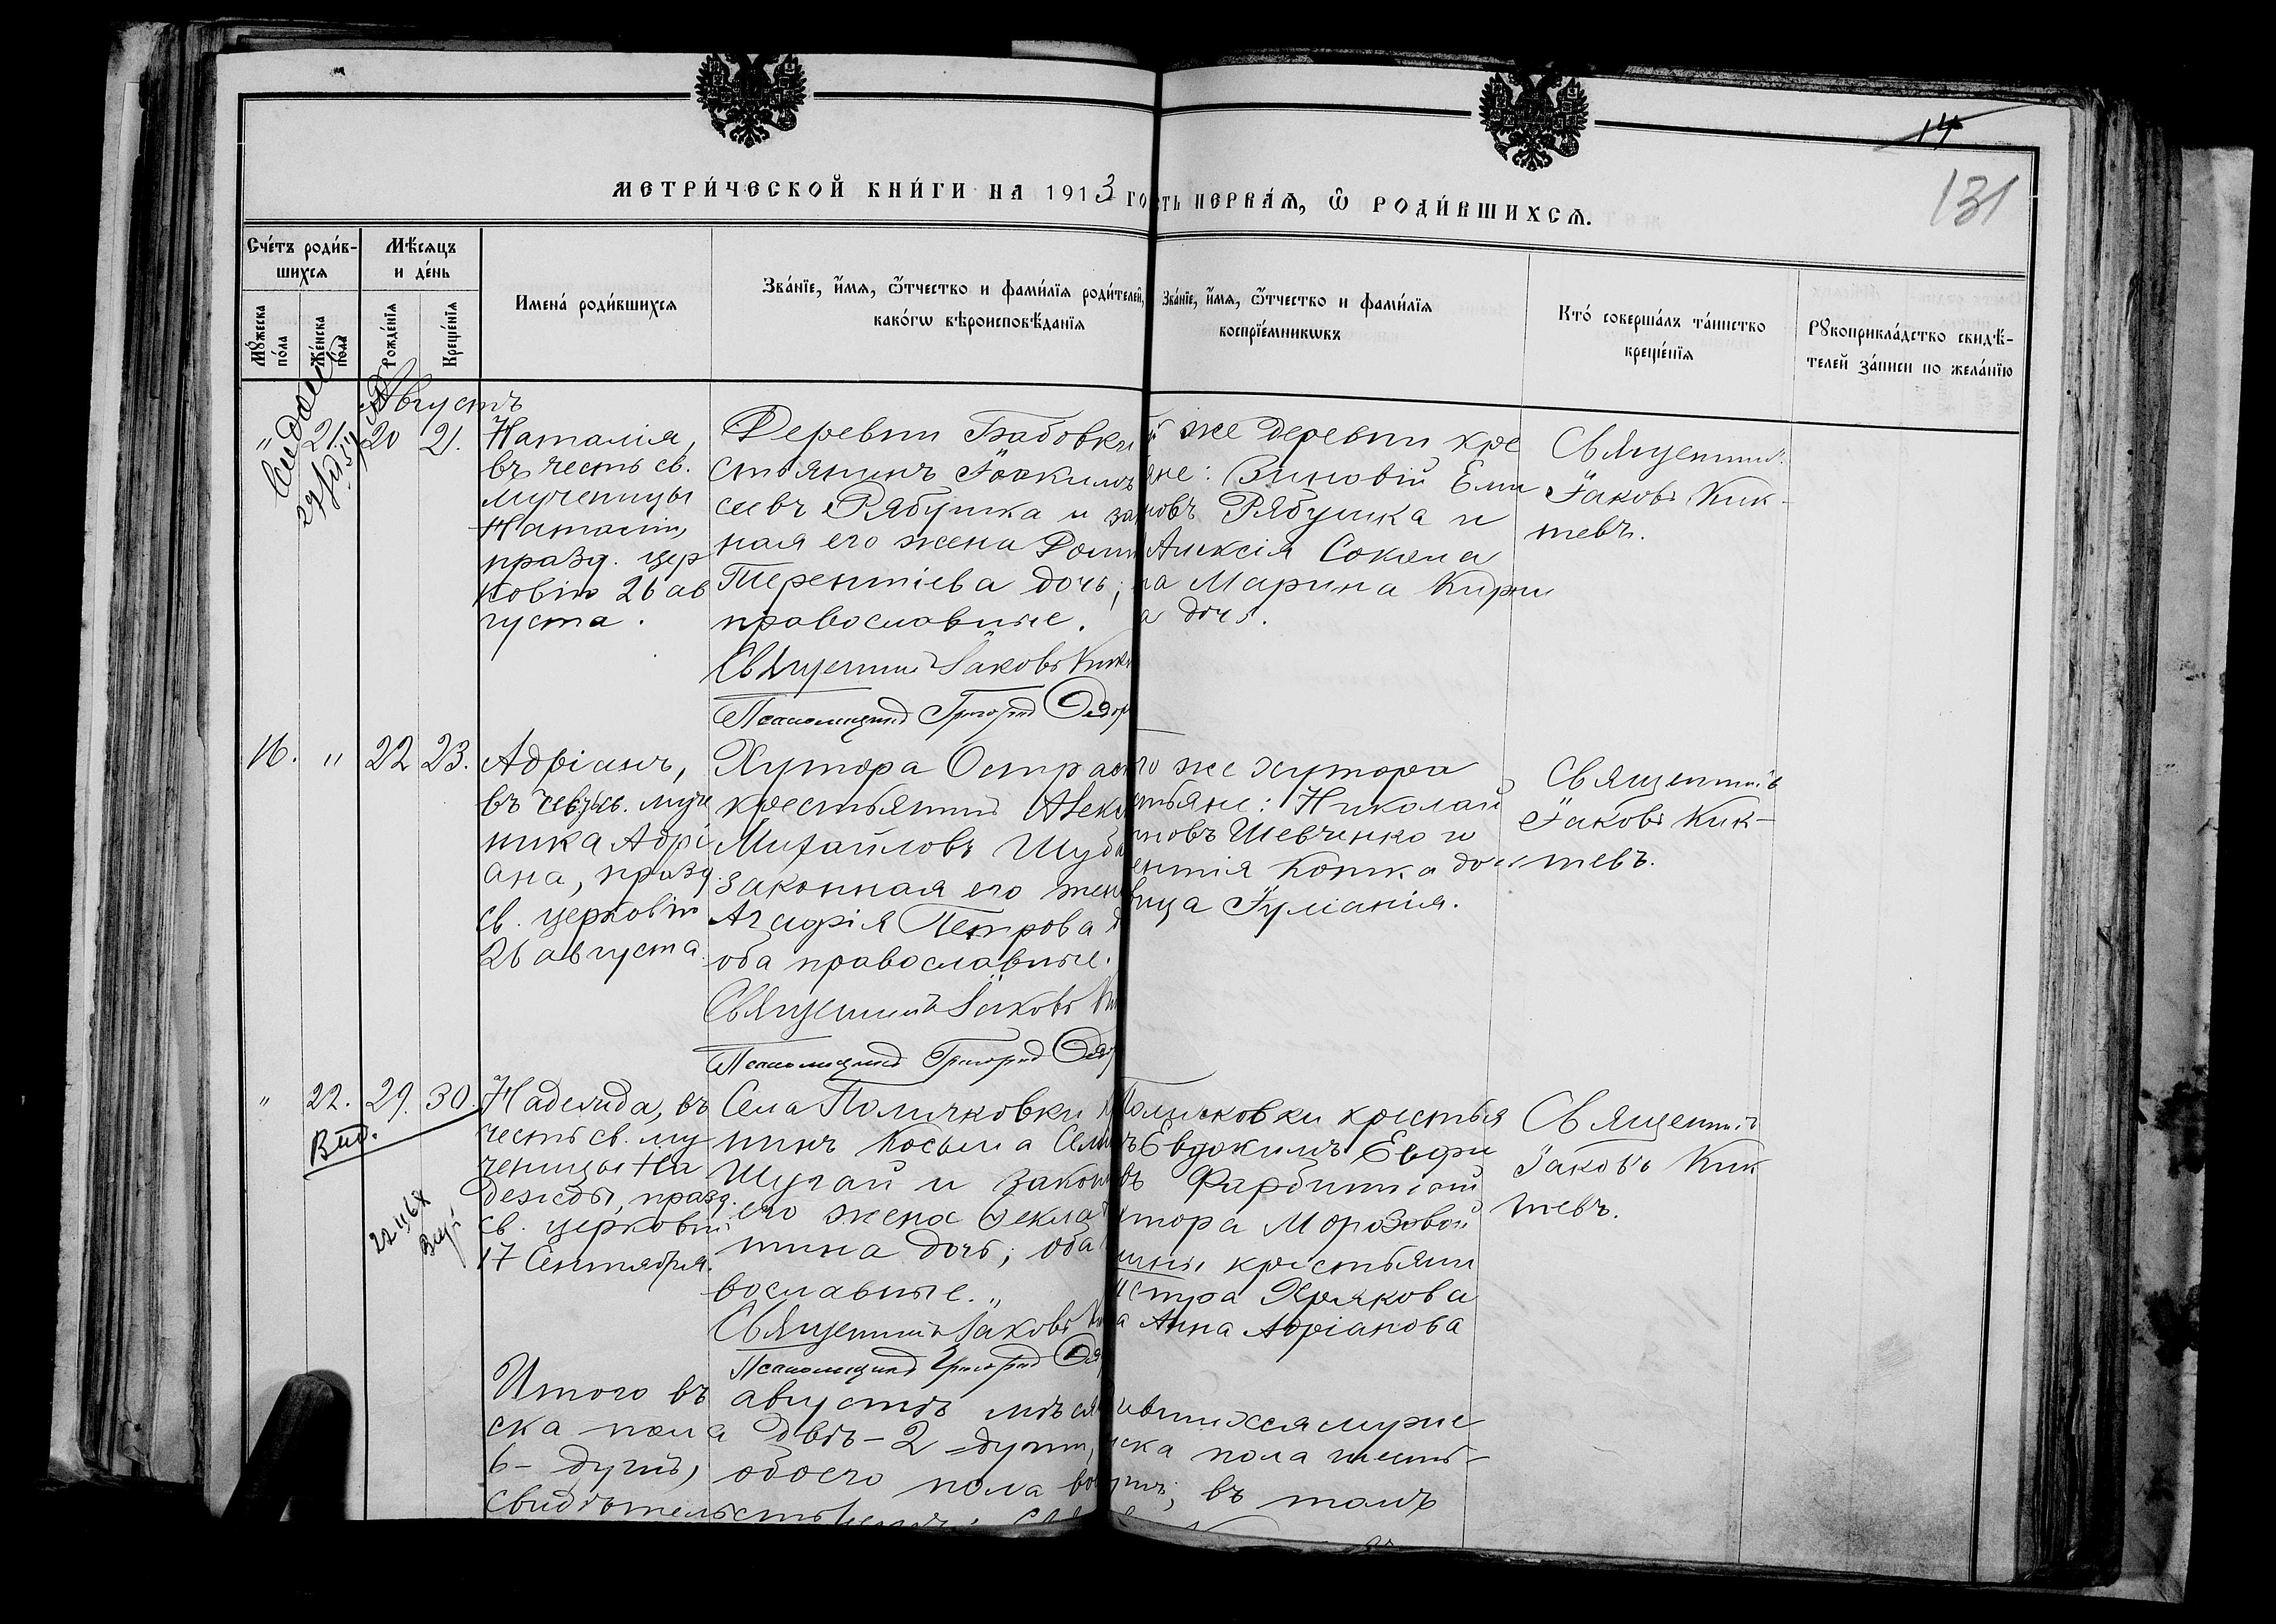 14
131
МЕТРИ́ЧЕСКОЙ КНИ́ГИ НА 1913 ГО
СТЬ ПЕРВА́Ѧ, Ѡ РОДИ́ВШИХСѦ.
Сче́тъ роди́в-
шихсѧ
Мѣ́сѧцъ
и де́нь
Мꙋ́жеска
по́ла
Же́нска
по́ла
Рожде́нїѧ
Креще́нїѧ
Имена̀ роди́вшихсѧ
Зва́нїе, и́мѧ, ѻ́тчество и фами́лїѧ роди́телей,
како́гѡ вѣроисповѣ́данїѧ
Зва́нїе, и́мѧ, ѻ́тчество и фами́лїѧ
воспрїе́мникѡвъ
Кто̀ соверша́лъ та́инство
креще́нїѧ
Рꙋкоприкла́дство свидѣ́-
телей за́писи по жела́нїю
Августъ
" 21. 20 21.
Наталія,
въ честь св.
мученицы
Наталіи,
празд. цер
ковію 26 ав
густа.
Деревни Бабовки
стьянинъ Іоакимъ
сеевъ Рябушка и за
ная его жена Домн
Терентіева дочь,
православные.
Священникъ Іаковъ Кик
Псаломщикъ Григорій Ѳедор
й же деревни кре
яне: Зиновій Ели
новъ Рябушка и
Алексія Сокола
на Марина Кири
а дочь.
Священникъ
Іаковъ Кик-
тевъ.
16. " 22 23.
Адріанъ,
въ честь св. муче
ника Адрі
ана, празд.
св. церковію
26 августа.
Хутора Остра
крестьянинъ Алек
Михайловъ Шуб
законная его жен
Агафія Петрова д
оба православные.
Священникъ Іаковъ Ки
Псаломщикъ Григорій Ѳедор
го же хутора
стьяне: Николай
новъ Шевченко и
ентія Кошка до
вица Іуліанія.
Священникъ
Іаковъ Кик-
тевъ.
" 22. 29. 30.
Выд.
Надежда, въ
честь св. му
ченицы На
дежды, празд.
св. церковію
17 Сентября.
Села Поличковки
нинъ Косьма Сем
Шугай и закон
его жена Ѳекла
тина дочь; оба
вославные."
Священникъ Іаковъ Ки
Псаломщикъ Григорій Ѳед
Поличковки крестья
ъ Евдокимъ Евфи
въ Фарбитній
утора Морозовой
ины крестьяни
естра Хрякова
а Анна Адріанова
Священникъ
Іаковъ Кик
тевъ.
Итого въ августѣ мѣся
ившихся муже
ска пола двѣ-2 души,
ска пола шесть-
6- душъ, обоего пола во
въ томъ
свидѣтельствуемъ: